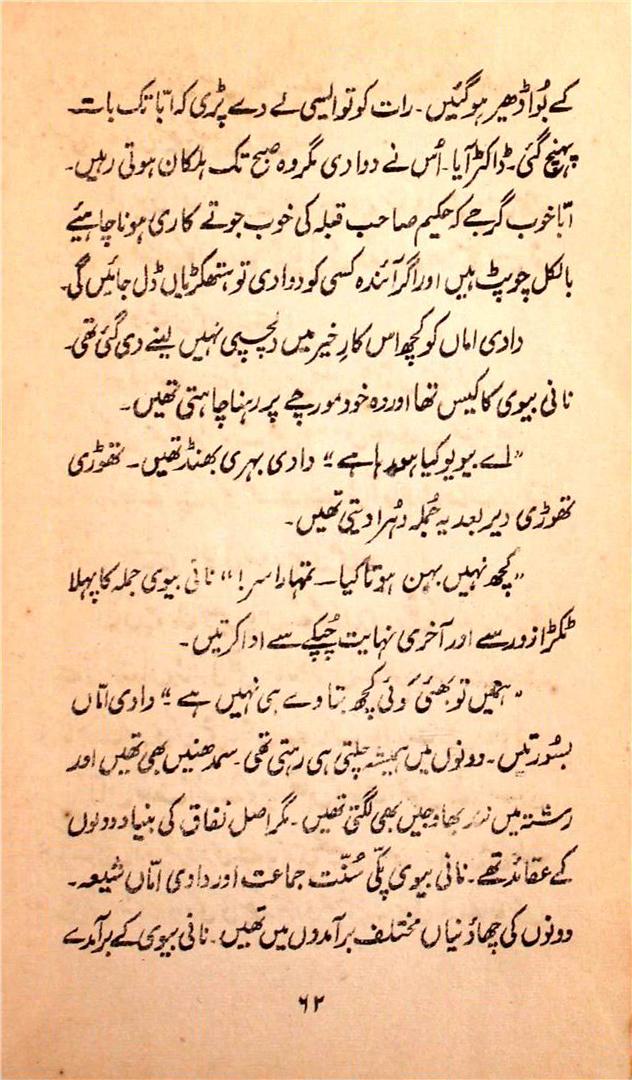 کے بُوا ڈھیر ہوگئیں۔ رات کو تو ایسی لے دے پڑی کہ ابّا تک بات
پہنچ گئی۔ ڈاکٹر آیا۔ اُس نے دوا دی مگر وہ صبح تک ہلکان ہوتی رہیں۔
ابّا خوب گرجے کہ حکیم صاحب قبلہ کی خوب جوتے کاری ہونا چاہئیے
بالکل چوپٹ ہیں اور اگر آئندہ کسی کو دوا دی تو ہتھکڑیاں ڈل جائیں گی۔
دادی اماں کو کچھ اس کارِ خیر میں دلچسپی نہیں لینے دی گئی تھی۔
نانی بیوی کا کیس تھا اور وہ خود مورچے پر رہنا چاہتی تھیں۔
”اے بیویو کیا ہو رہا ہے“ دادی بہری بھنڈ تھیں۔ تھوڑی
تھوڑی دیر بعد یہ جُملہ دہُرا دیتی تھیں۔
”کچھ نہیں بہن ہوتا کیا۔ تمہارا سر!“ نانی بیوی جملہ کا پہلا
ٹکڑا زور سے اور آخری نہایت چُپکے سے ادا کرتیں۔
”ہمیں تو بھئی کوئی کچھ بتاوے ہی نہیں ہے“ دادی امّاں
بسُورتیں۔ دونوں میں ہمیشہ چلتی ہی رہتی تھی۔ سمدھنیں بھی تھیں اور
رشتہ میں نند بھاوجیں بھی لگتی تھیں۔ مگر اصل نفاق کی بنیاد دونوں
کے عقائد تھے۔ نانی بیوی پکّی سُنّت جماعت اور دادی امّاں شیعہ۔
دونوں کی چھاؤنیاں مختلف برآمدوں میں تھیں۔ نانی بیوی کے برآمدے
۶۲